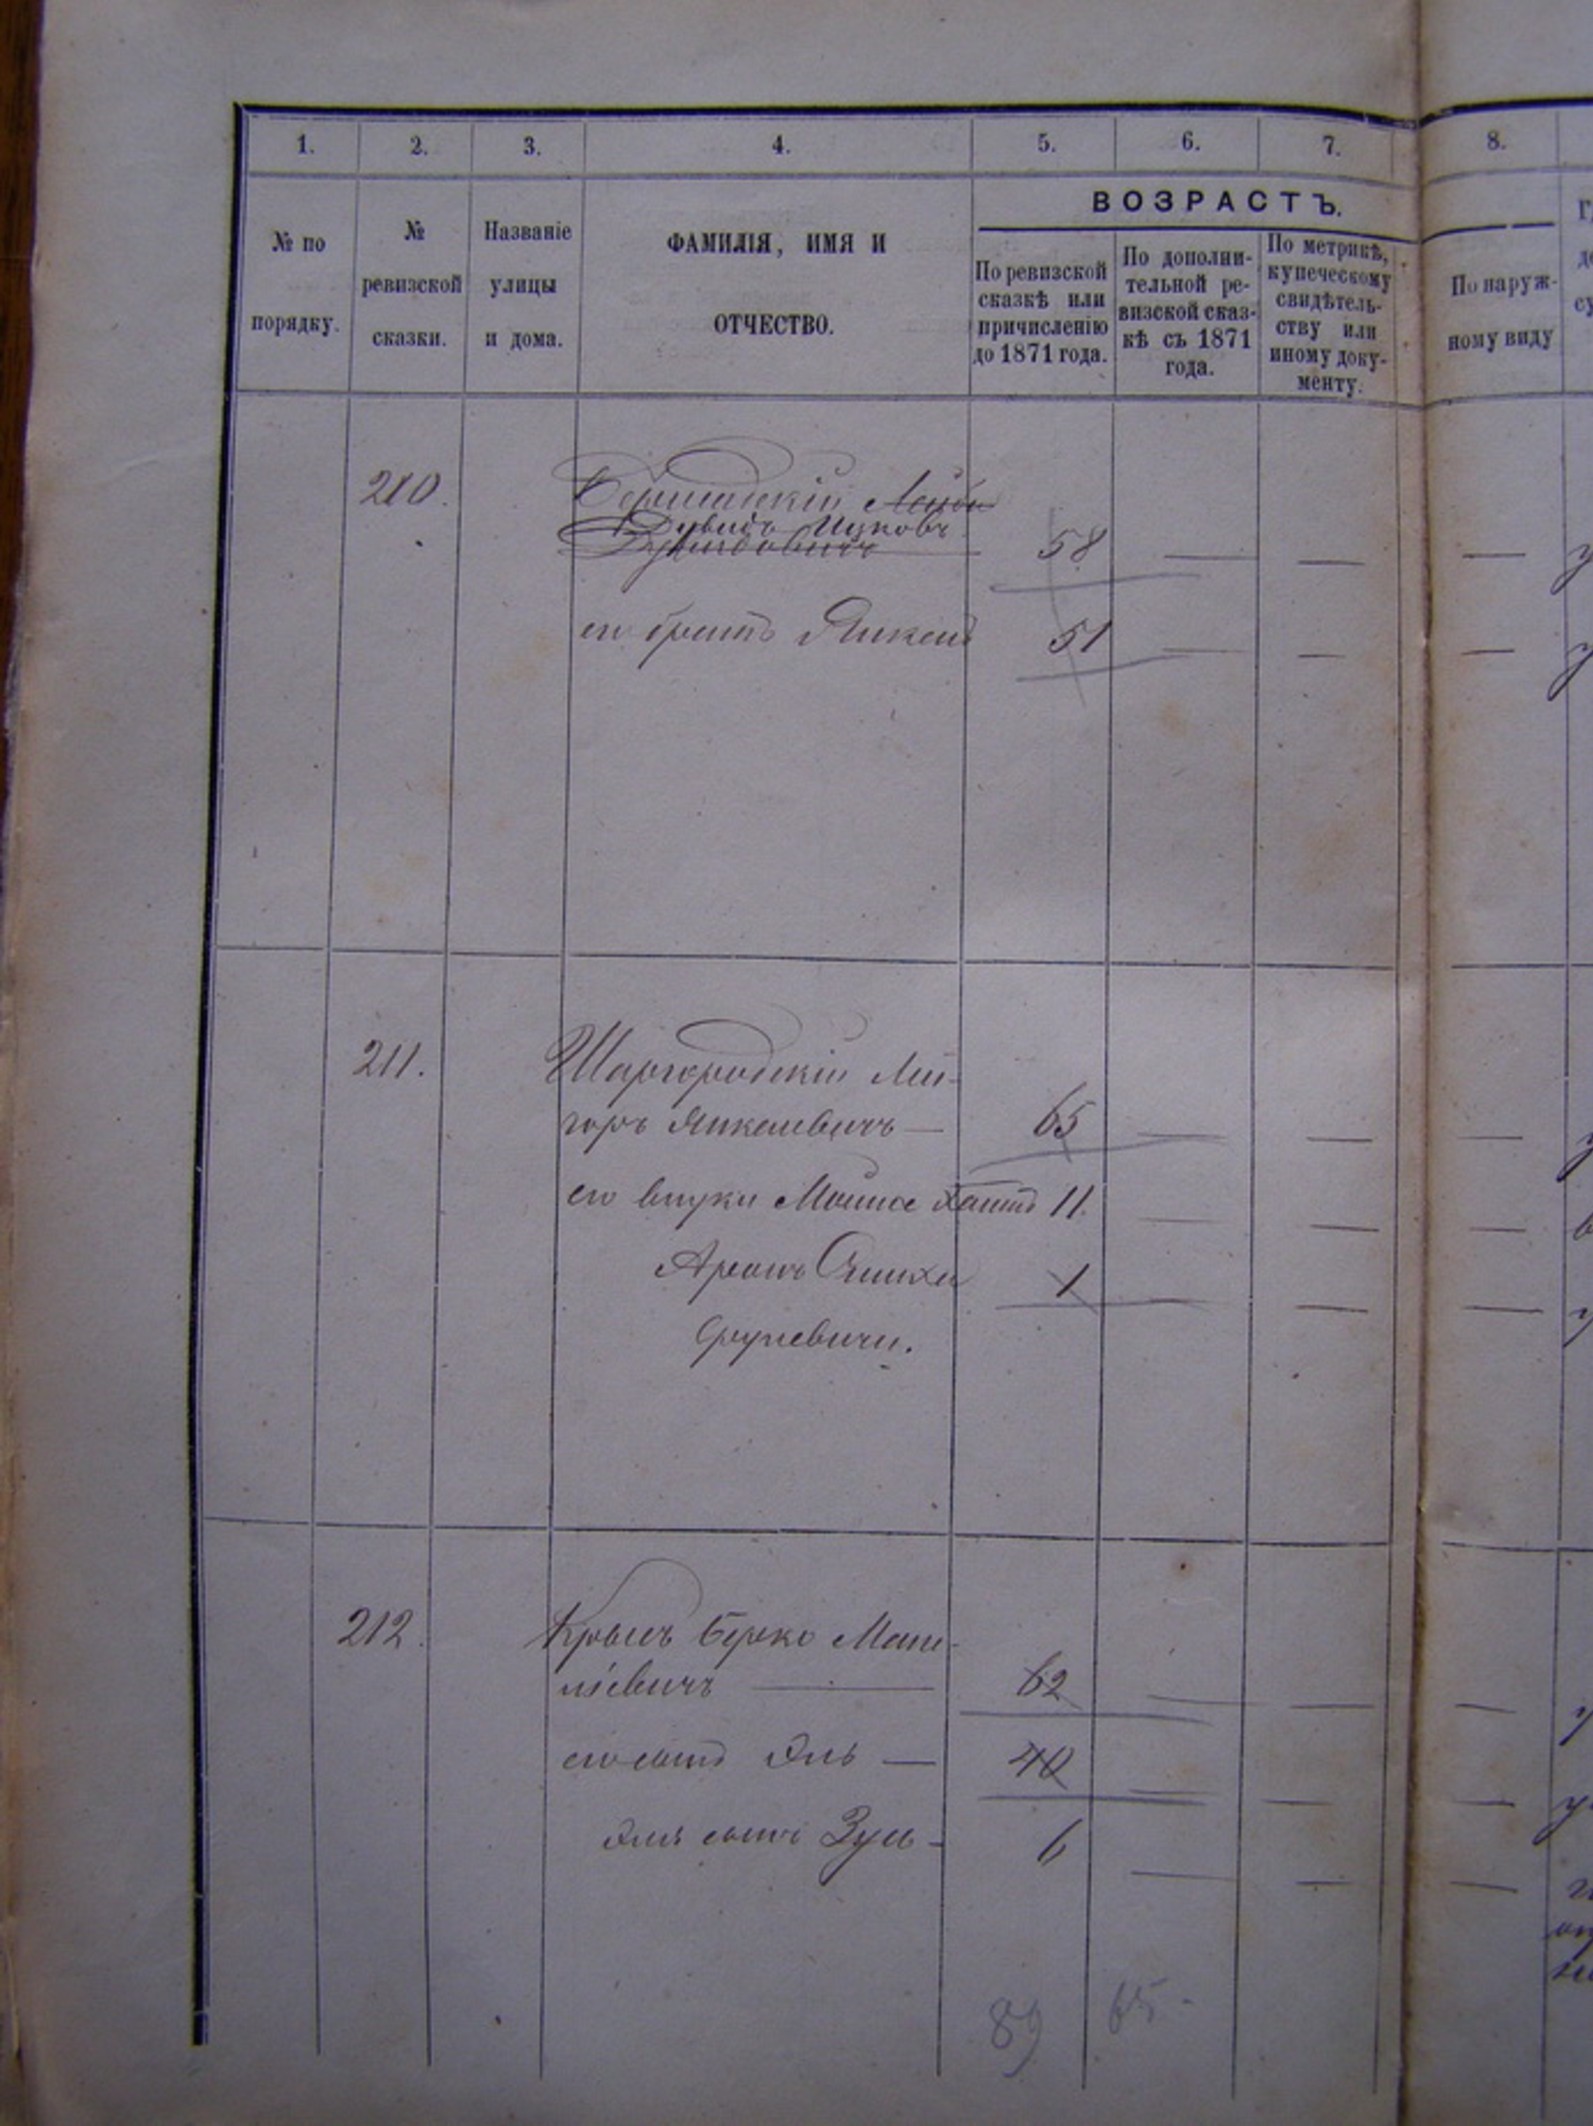 1. 2. 3. 4. 5. 6. 7. 8.
ВОЗРАСТЪ.
№ по
порядку.
№
ревизской
сказки.
Названіе
улицы
и дома.
ФАМИЛІЯ, ИМЯ И
ОТЧЕСТВО.
По ревизской
сказкѣ или
причисленію
до 1871 года.
По дополни-
тельной ре-
визской сказ-
кѣ съ 1871
года.
По метрикѣ,
купеческому
свидѣтель-
ству или
иному доку-
менту.
По наруж-
ному виду
210.
Дувидъ Ицковъ 58
его братъ 51
211. Шаргородскій Лей-
Янкелевичъ — 65
его внуки Моишe 11.
Аронъ 1
Сруневичи.
212. Крымъ Берко Мани-
лієвичъ 62
его сынъ Эль — 40
Эля сынъ Зусь - 6
89 65-